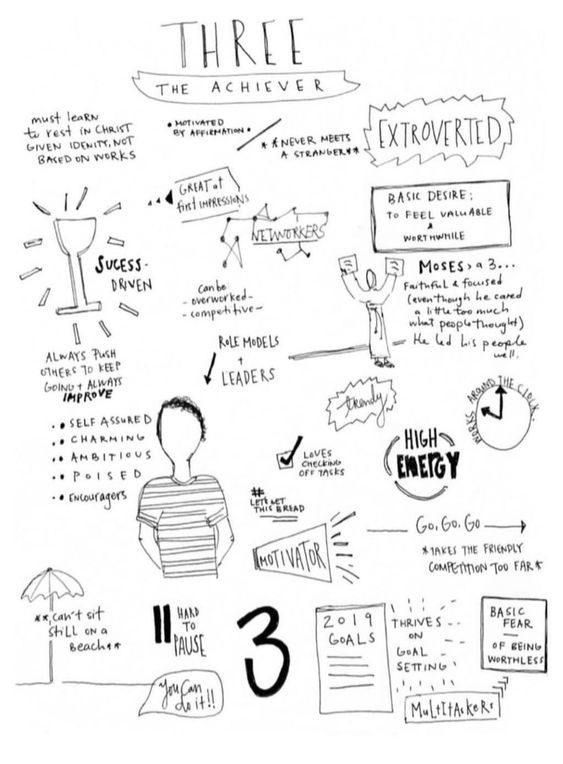 THREE
THE ACHIEVER
must learn
to rest in CHRIST
GIVEN IDENTITY, NOT
BASED ON WORKS
• MOTIVATED
BY AFFIRMATION •
**NEVER MEETS
A STRANGER**
EXTROVERTED
GREAT at
first IMPRESSIONS
NETWORKERS
BASIC DESIRE:
TO FEEL VALUABLE
&
WORTHWHILE
SUCESS-
DRIVEN
Can be
- overworked -
- competitive -
MOSES > a 3...
Faithful & focused
(even though he cared
a little too much
what people thought)
He led his people
well.
ALWAYS PUSH
OTHERS TO KEEP
GOING + ALWAYS
IMPROVE
ROLE MODELS
+
LEADERS
trendy
WORKS AROUND THE CLOCK
• • SELF ASSURED
• • CHARMING
• • AMBITIOUS
• • POISED
• • Encouragers
LOVES
CHECKING
OFF TASKS
HIGH
ENERGY
#
LETS GET
THIS BREAD
MOTIVATOR
GO, GO, GO
*TAKES THE FRIENDLY
COMPETITION TOO FAR*
**can't sit
still on a
beach**
HARD
TO
PAUSE
3
2019
GOALS
THRIVES
ON
GOAL
SETTING
BASIC
FEAR
—
OF BEING
WORTHLESS
You can
do it!!
MULTITASKERS